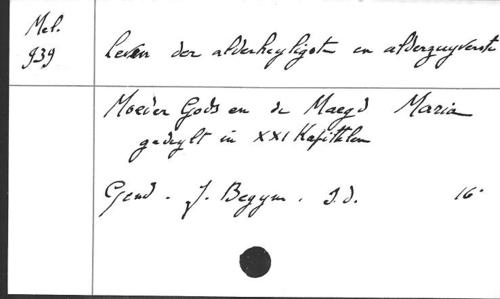 Mel.
939
leven der alderheyligste en alderzuyverste
Moeder Gods en de Maegd Maria
gedeylt in XXI Kapittelen
Gend. J. Begyn. s.d. 16°